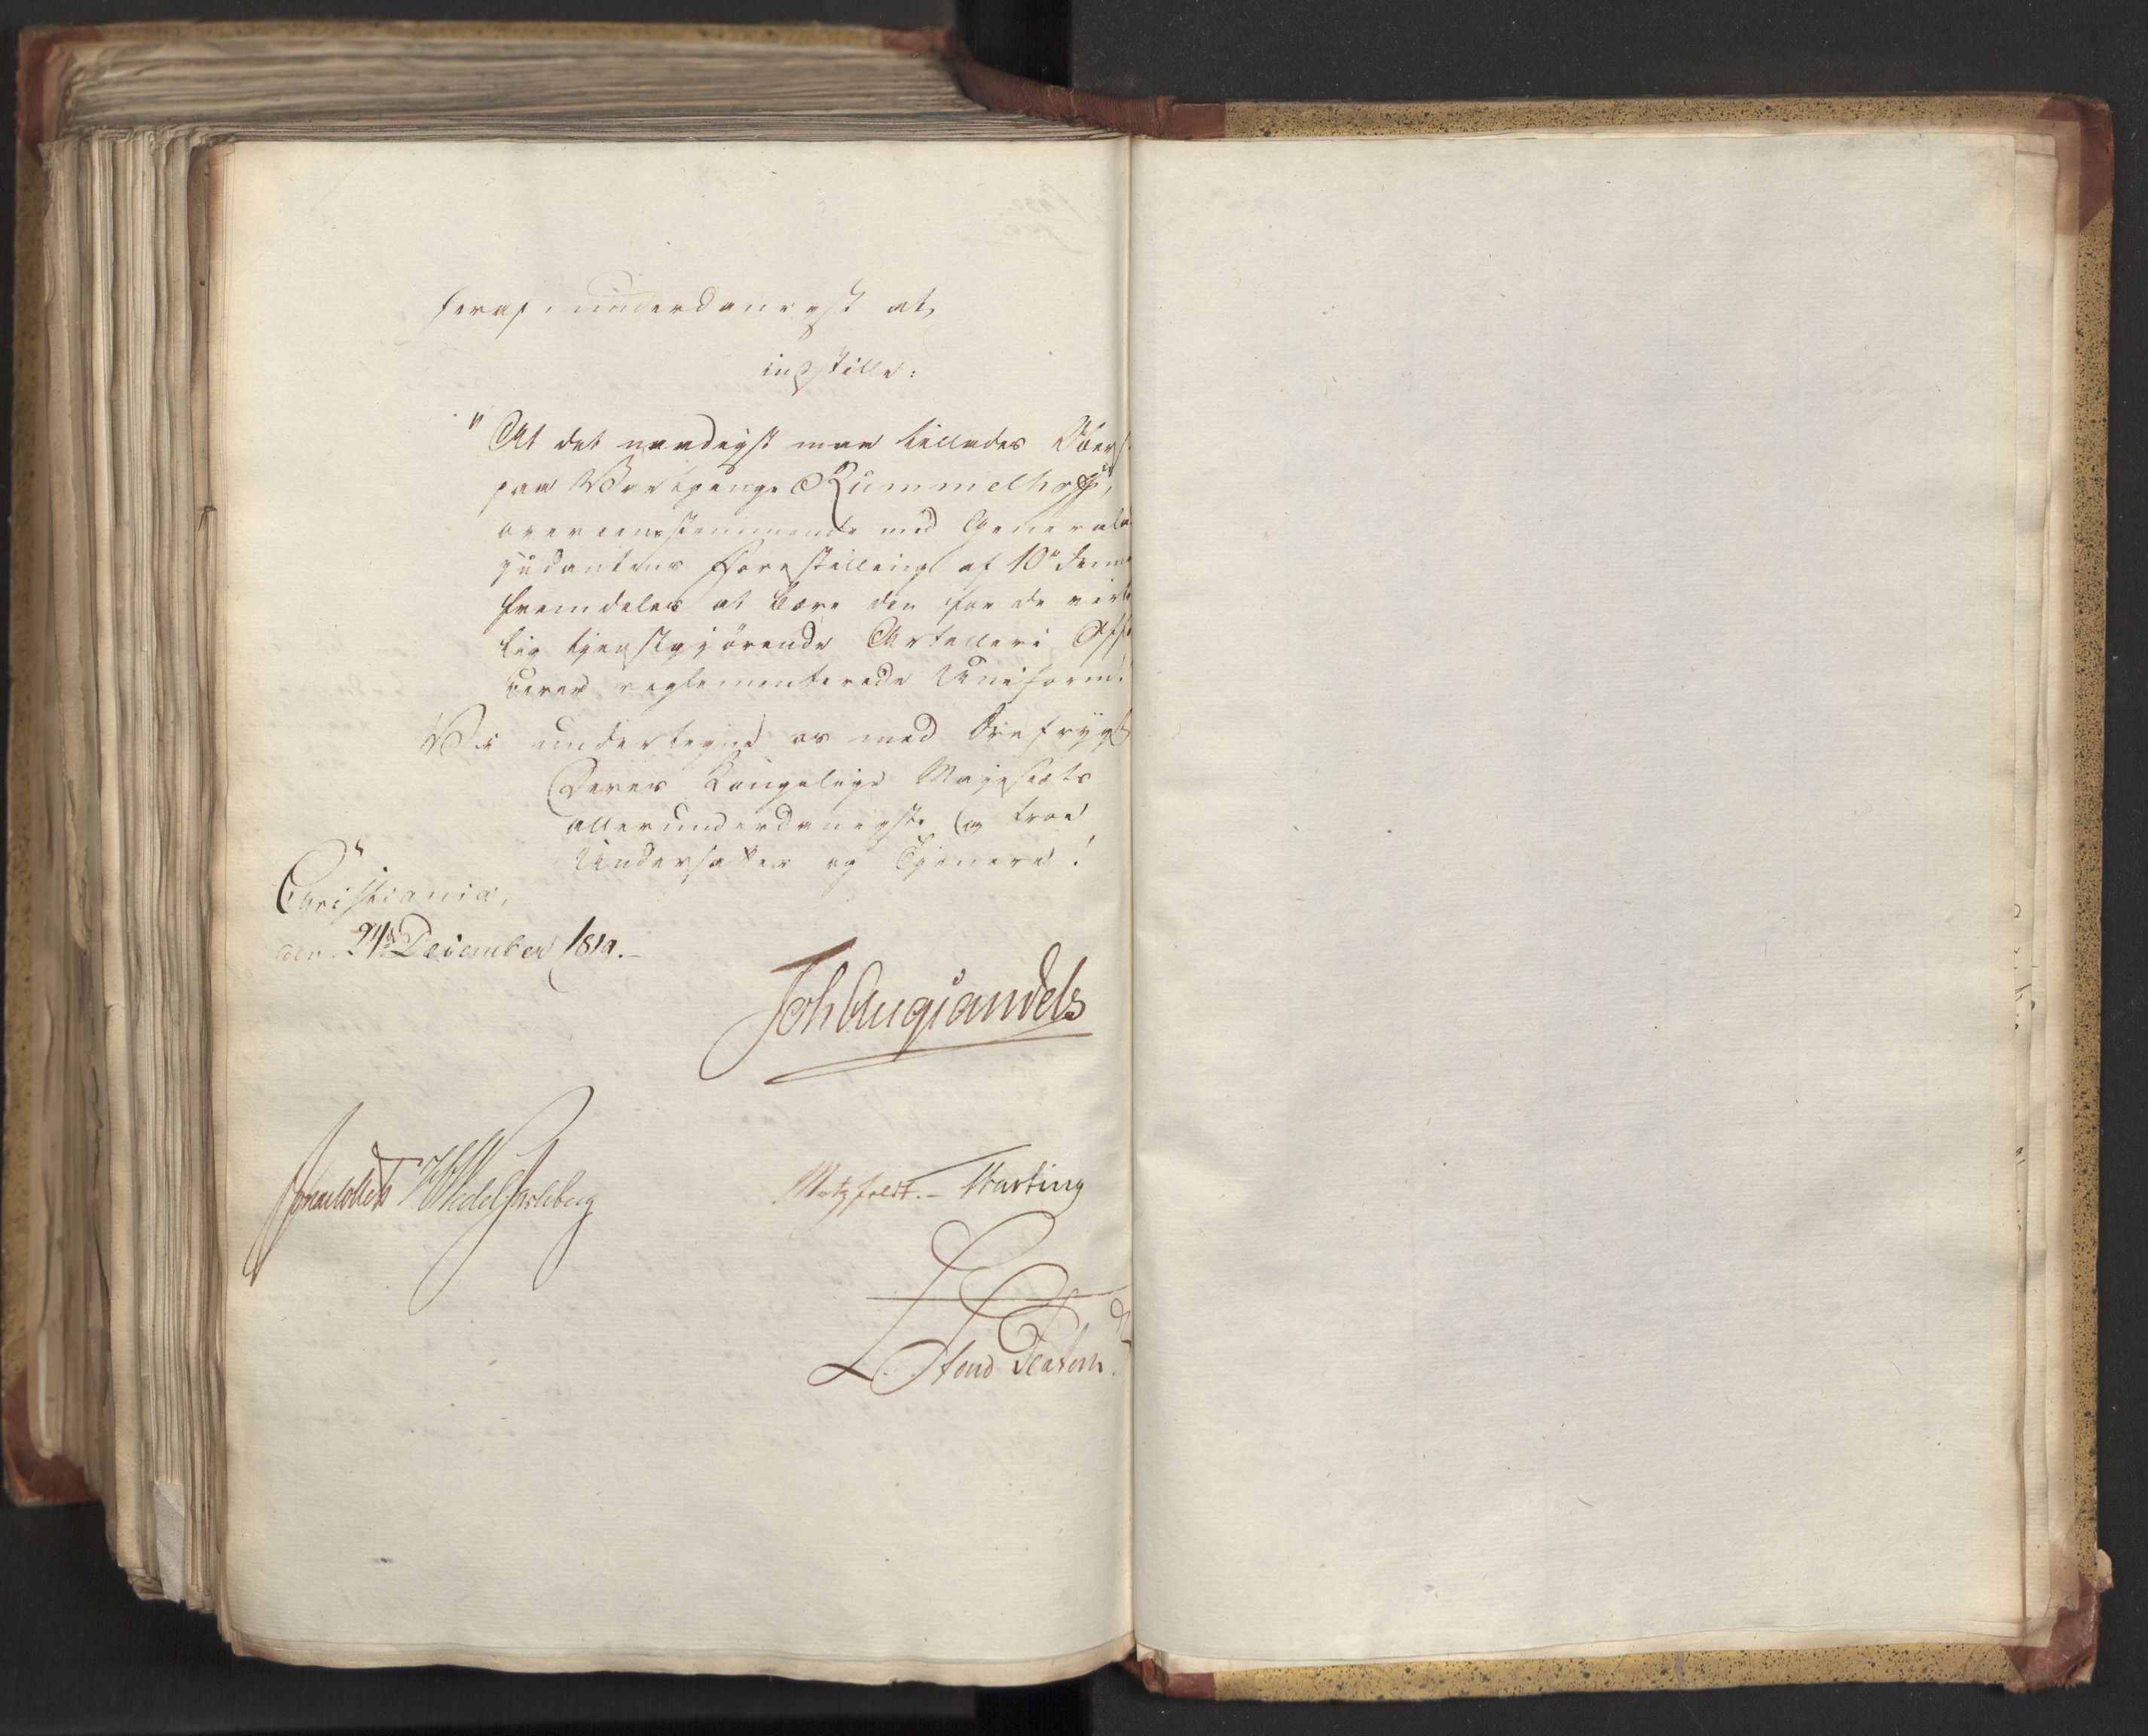 heras, underdanigst at
indstille:
"At det naadigst maa tillades Ober
paa Vartpenge Rummelhoff,
overeensstemmende med Generalad
judantens Forestilling af 10de denne
fremdeles at bære den for de virke
lig tjenstgjørende Artilleri Offi
cerer reglementerede Uniform."
Vi undertegne os med Ærefrygt
Deres Kongelige Majestæts
allerunderdanigste og troe
Undersatter og Tjenere!
Christiania,
den 24de December 1819.-
Joh Aug Sandels
Jonas Collett HWedel Jarlsberg
Motzfeldt.- Hartting